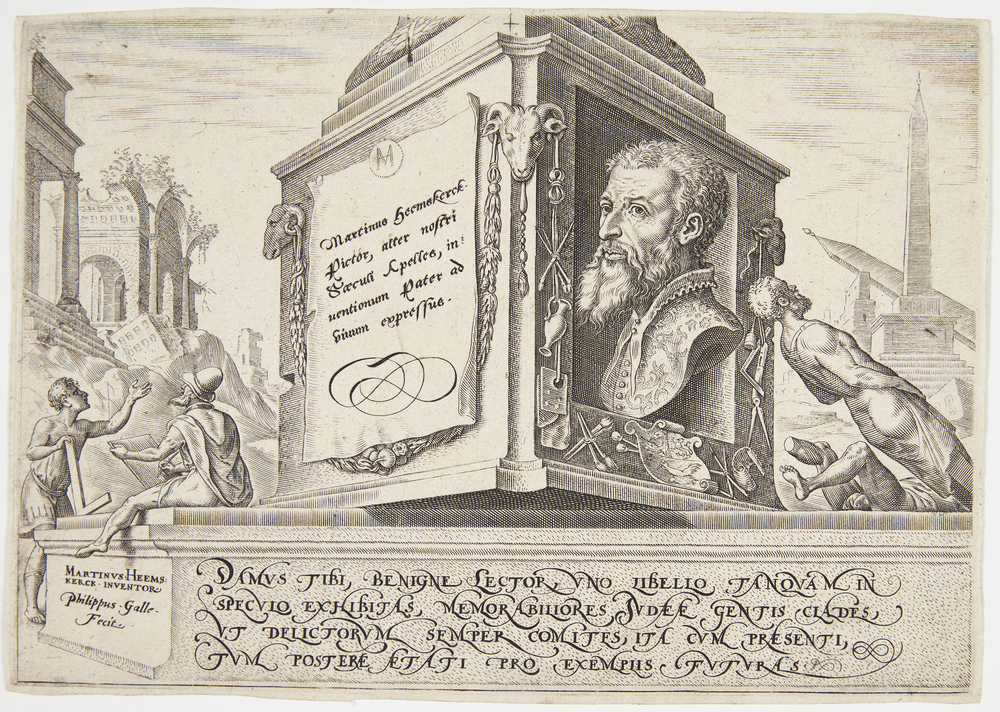 Martinus Heemskerck.
Pictor, alter nostri
Sæculi Apelles, in:
uentionum Pater ad
viuum expressus.
MARTINVS·HEEMS:
KERCK·INVENTOR
Philippus·Galle·
Fecit.
DAMVS TIBI, BENIGNE LECTOR, VNO LIBELLO TANQVAM IN
SPECVLO EXHIBITAS, MEMORABILIORES IVDÆÆ GENTIS CLADES,
VT DELICTORVM SEMPER COMITES, ITA CVM PRÆSENTI,
TVM POSTERÆ ÆTATI PRO EXEMPLIS FVTVRAS.